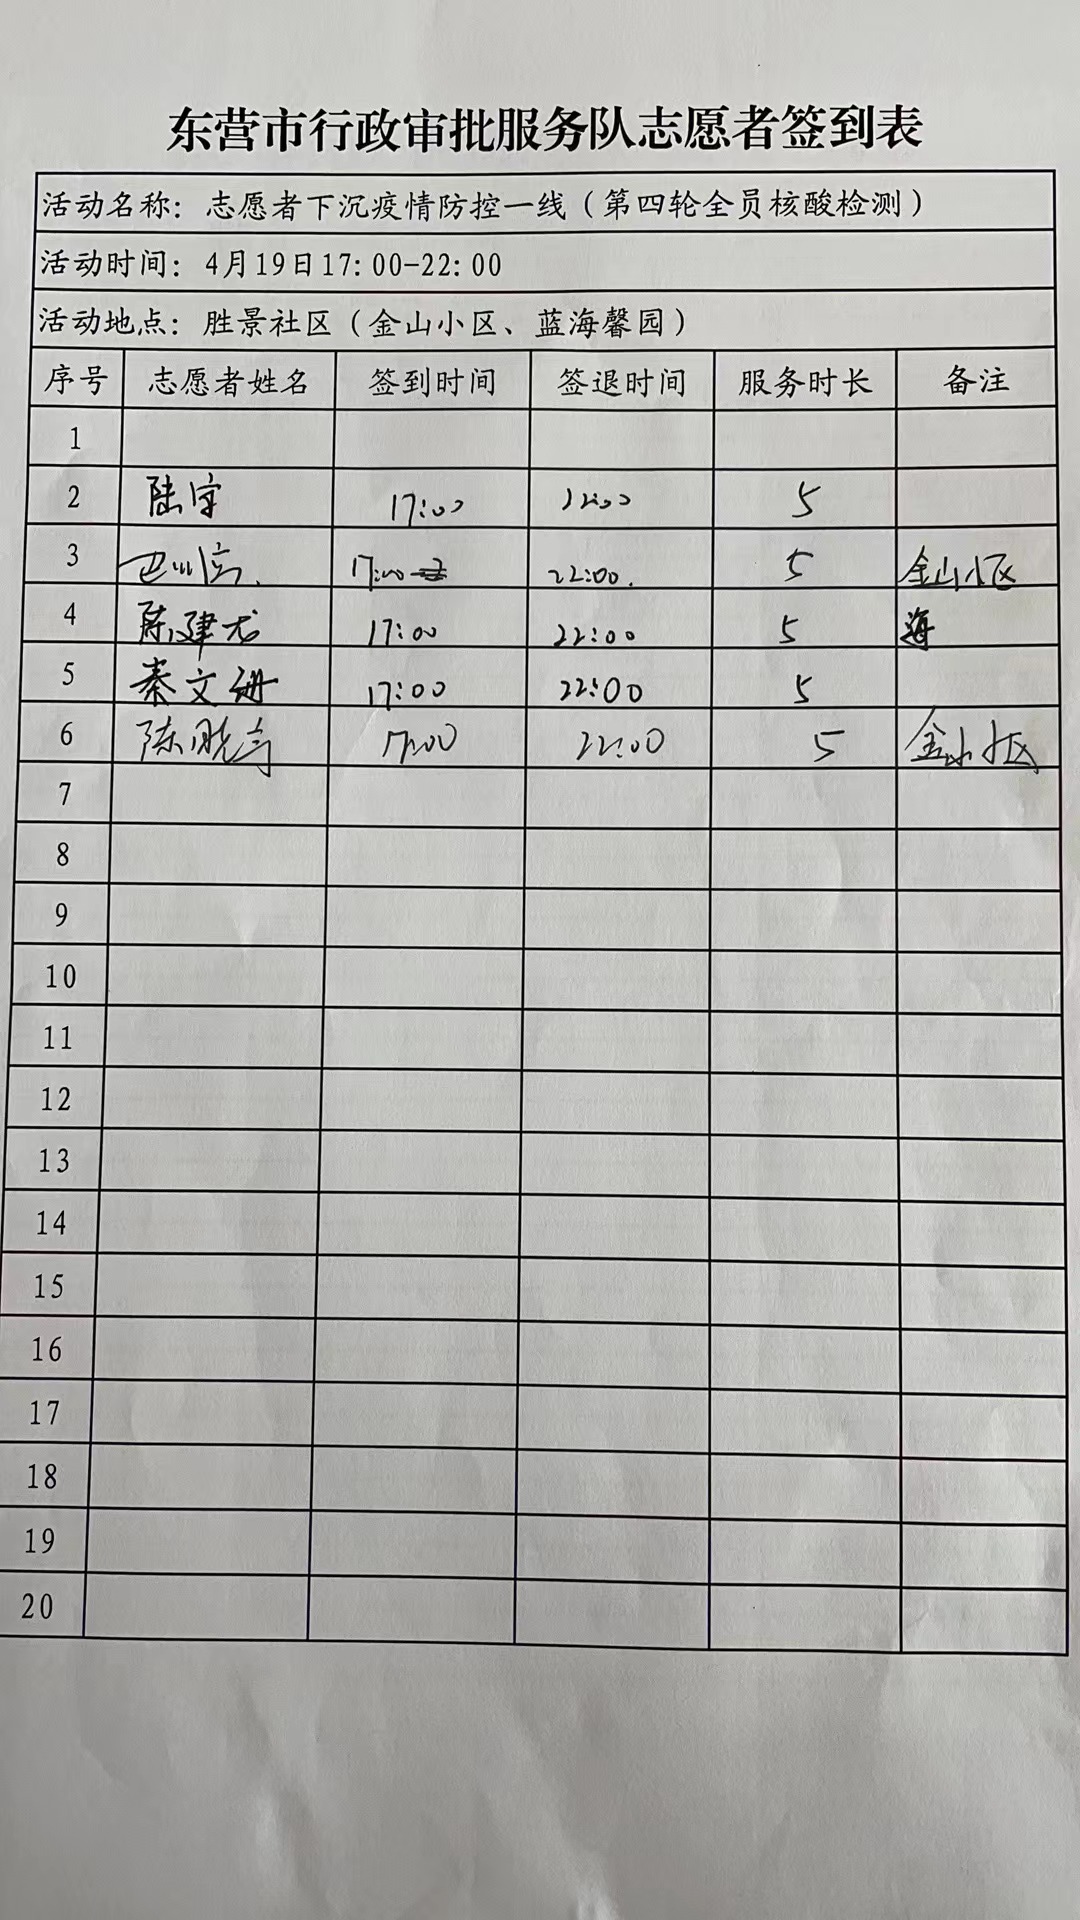 东营市行政审批服务队志愿者签到表
活动名称：志愿者下沉疫情防控一线（第四轮全员核酸检测）
活动时间：4月19日17:00-22:00
活动地点：胜景社区（金山小区、蓝海馨园）
序号 志愿者姓名 签到时间 签退时间 服务时长 备注
1
2 陆 17:00 22:00 5
3 17:00 22:00. 5 金山小区
4 陈建龙 17:00 22:00 5 海
5 秦文 17:00 22:00 5
6 陈晓 17:00 22:00 5 金山小区
7
8
9
10
11
12
13
14
15
16
17
18
19
20